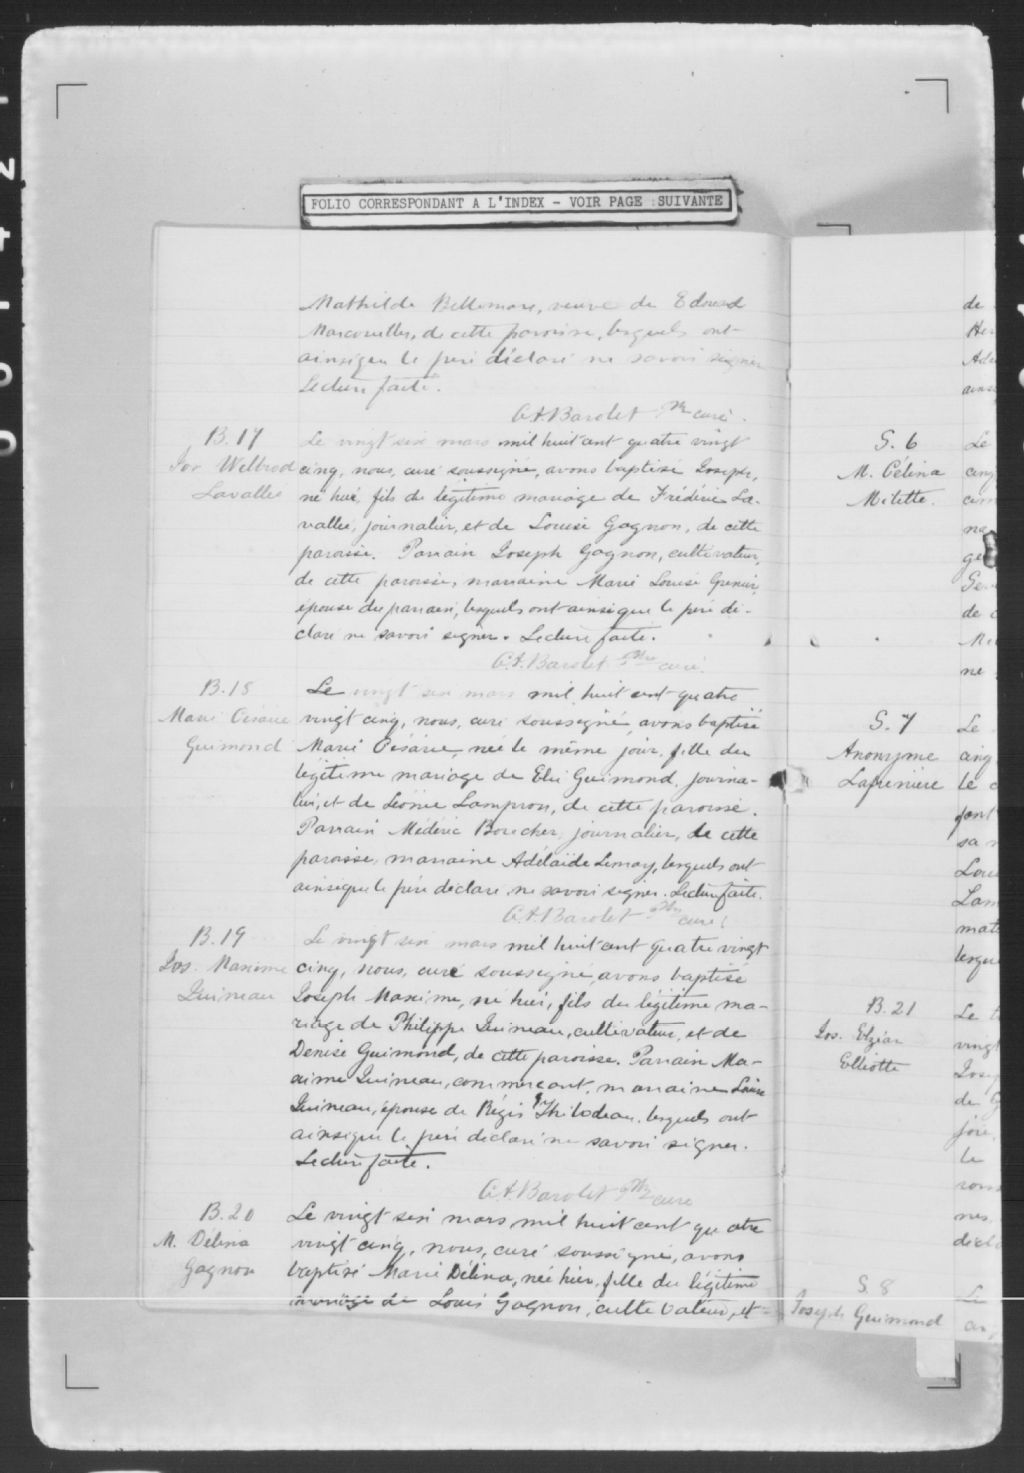 FOLIO CORRESPONDANT A L'INDEX - VOIR PAGE SUIVANTE
Mathilde Bellemare, veuve de Edouard
Marcouiller, de cette paroisse, lesquels ont
ainsique le père déclaré ne savoir signer
Lecture faite.
Barolet Ptre curé.
B.17
Jos Wellrod
Lavallée
Le vingt six mars mil huit cent quatre vingt
cinq, nous, curé soussigné, avons baptisé Joseph,
né hier, fils du légitime mariage de Frédéric La-
vallée, journalier, et de Louise Gagnon, de cette
paroisse. Parrain Joseph Gagnon, cultivateur,
de cette paroisse, marraine Marie Louise Grenier,
épouse du parrain, lesquels ont ainsique le père dé-
claré ne savoir signer. Lecture faite.
Barolet Ptre curé.
B.18
Marie Césarie
Guimond
Le vingt six mars mil huit cent quatre
vingt cinq, nous, curé soussigné avons baptisé
Marie Césarie, née le même jour, fille du
légitime mariage de Elie Guimond, journa-
lier, et de Léonie Lampron, de cette paroisse.
Parrain Médéric Boucher, journalier, de cette
paroisse, marraine Adélaïde Lemay, lesquels ont
ainsique le père déclaré ne savoir signer. Lecture faite.
Barolet Ptre curé
B.19
Jos. Maxime
Quineau
Le vingt six mars mil huit cent quatre vingt
cinq, nous, curé soussigné, avons baptisé
Joseph Maxime, né hier, fils du légitime ma-
riage de Philippe Quineau, cultivateur, et de
Denise Guimond, de cette paroisse. Parrain Ma-
xime Quineau, commerçant, marraine
Quineau, épouse de Régis Thibodeau, lesquels ont
ainsique le père déclaré ne savoir signer.
Lecture faite.
Barolet Ptre curé
B.20
M. Délina
Gagnon
Le vingt six mars mil huit cent quatre
vingt cinq, nous, curé soussigné, avons
baptisé Marie Délina, née hier, fille du légitime
mariage de Louis Gagnon, cultivateur, et
S.6
M. Célina
Milette.
S.7
Anonyme
Lafrenière
B.21
Jos. Elzéar
Elliotte
S.8
Joseph Guimond